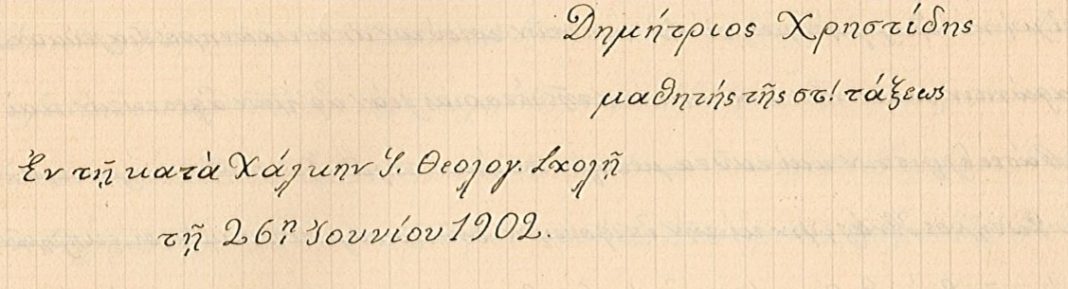 Δημήτριος Χρηστίδης
μαθητής τῆς στ! τάξεως
Ἐν τῇ κατὰ Χάλκην Ἱ. Θεολογ. Σχολῇ
τῇ 26ῃ Ἰουνίου 1902.